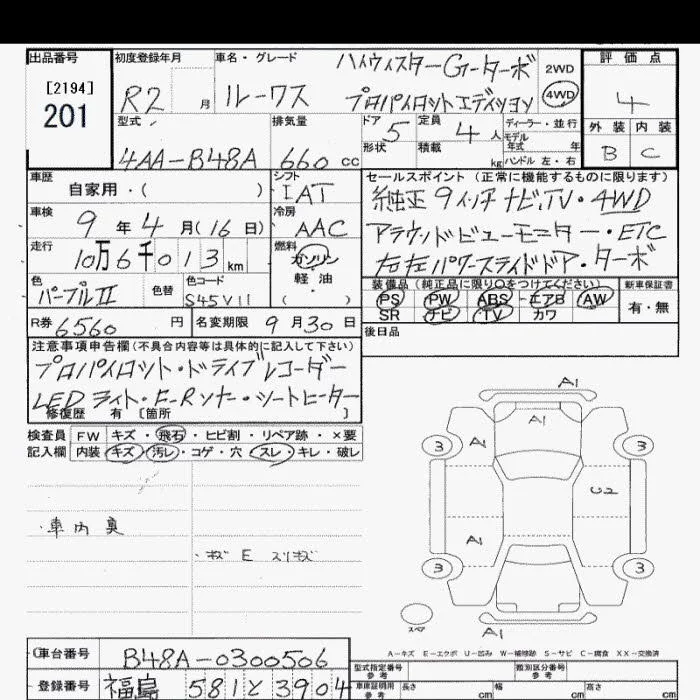 出品番号 初度登録年月 車名・グレード ハイウィスターGターボ 2WD 評価点
[2194]
201 R2 月 ルークス プロパイロットエディション 4WD 4
型式 排気量 ドア 5 定員 4 人 ディーラー・並行 外装 内装
モデル
年式 年
4AA-B48A 660 cc 形状 積載 kg ハンドル 左・右 B C
車歴 シフト セールスポイント(正常に機能するものに限ります)
自家用・( ) IAT 純正9インチナビ,TV・4WD
車検 冷房
9 年 4 月(16 日) AAC アラウンドビューモニター・ETC
走行 燃料
10万6千013 km ガソリン 右左パワースライドドア・ターボ
軽油
( )
色 色替 色コード 装備品(純正品に限り○をつけてください) 新車保証書
パープルII S45V11 PS PW ABS エアB AW 有・無
SR ナビ TV カワ
R券 6560 円 名変期限 9月30日 後日品
注意事項申告欄(不具合内容等は具体的に記入して下さい)
プロパイロット・ドライブレコーダー
LEDライト・F-Rソナー・シートヒーター
修復歴 有 [箇所 ]
検査員 FW キズ・飛石・ヒビ割・リペア跡・×要
記入欄 内装 キズ・汚レ・コゲ・穴・スレ・キレ・破レ
A1
A1
3 A1 3
U2
・車内臭
・キズ E スリキズ
A1
3 3
スペア
A1
A-キズ E-エクボ U-凹み W-補修跡 S-サビ C-腐食 XX-交換済
車台番号 B48A-0300506 型式指定番号 参考 類別区分番号 参考
登録番号 福島 581と3904 車庫証明用 参考 長さ cm 幅 cm 高さ cm